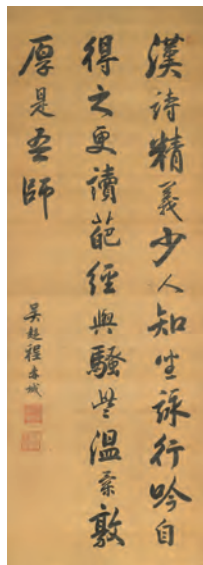 漢詩精義少人知坐詠行吟自
得之更讀葩經與騷些溫柔敦
厚是吾師
吳趨程